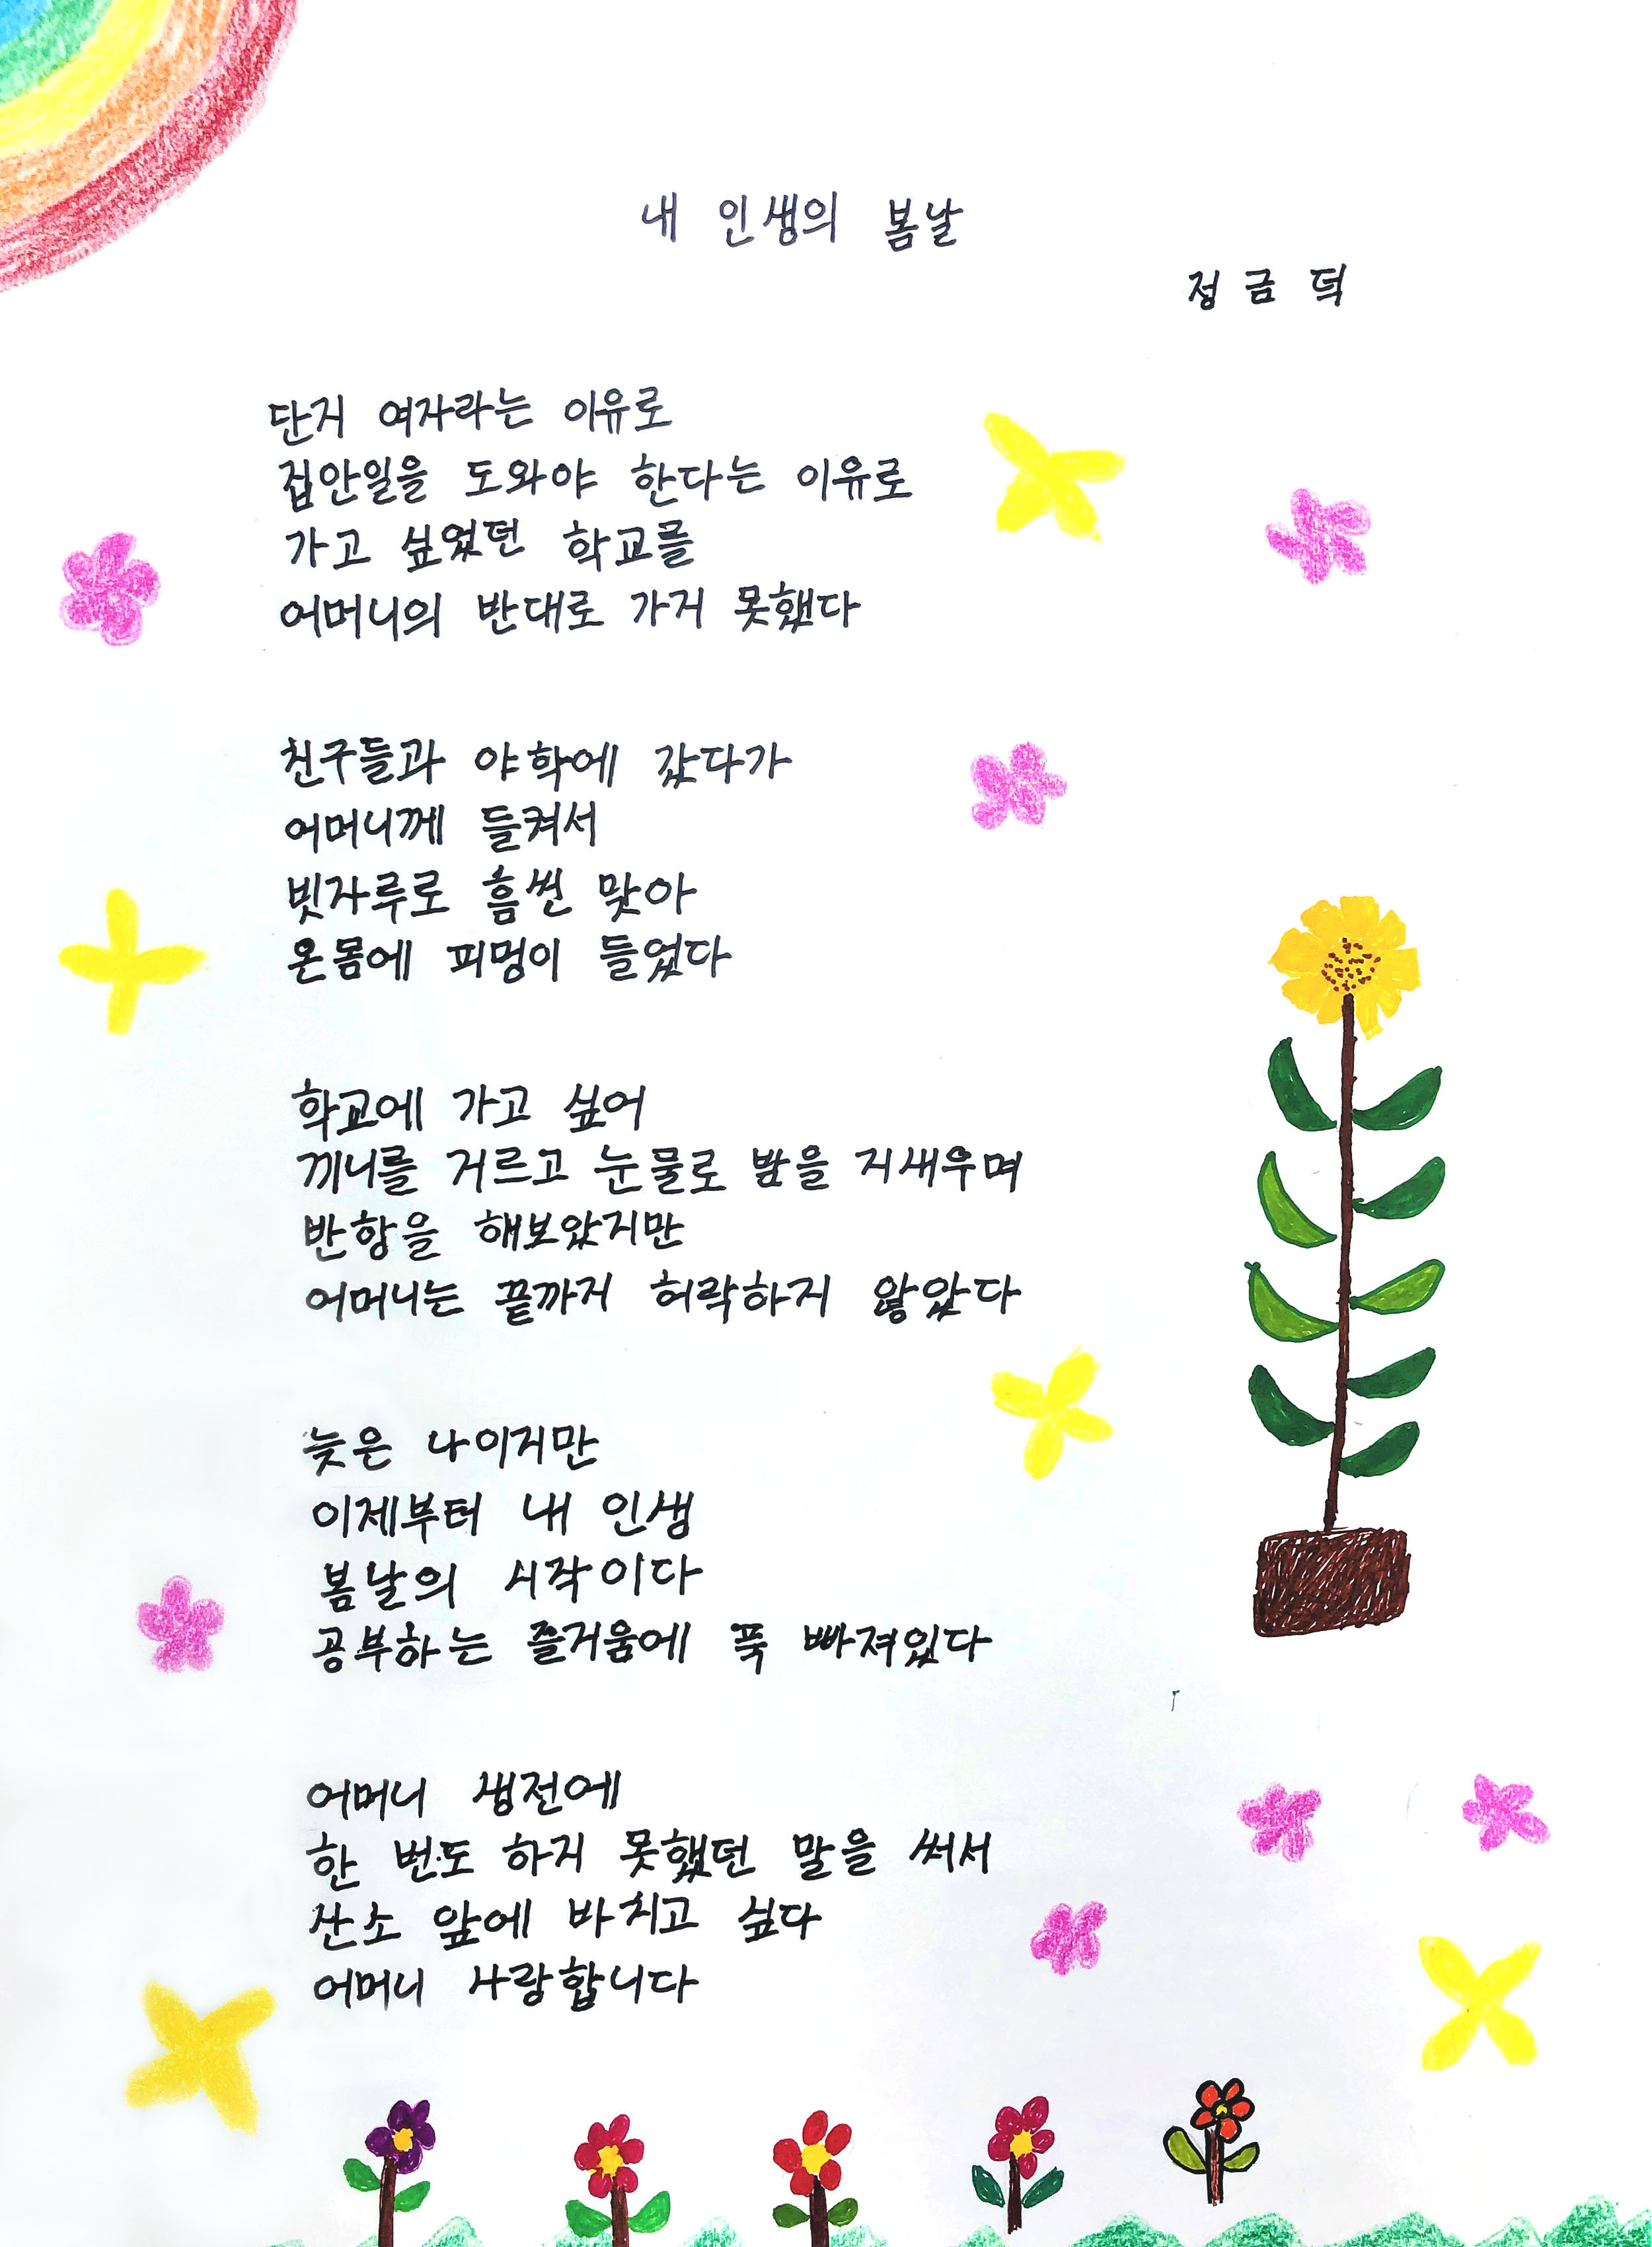 내 인생의 봄날
정금덕
단지 여자라는 이유로
집안일을 도와야 한다는 이유로
가고 싶었던 학교를
어머니의 반대로 가지 못했다
친구들과 야학에 갔다가
어머니께 들켜서
빗자루로 흠씬 맞아
온몸에 피멍이 들었다
학교에 가고 싶어
끼니를 거르고 눈물로 밤을 지새우며
반항을 해보았지만
어머니는 끝까지 허락하지 않았다
늦은 나이지만
이제부터 내 인생
봄날의 시작이다
공부하는 즐거움에 푹 빠져있다
어머니 생전에
한 번도 하지 못했던 말을 써서
산소 앞에 바치고 싶다
어머니 사랑합니다